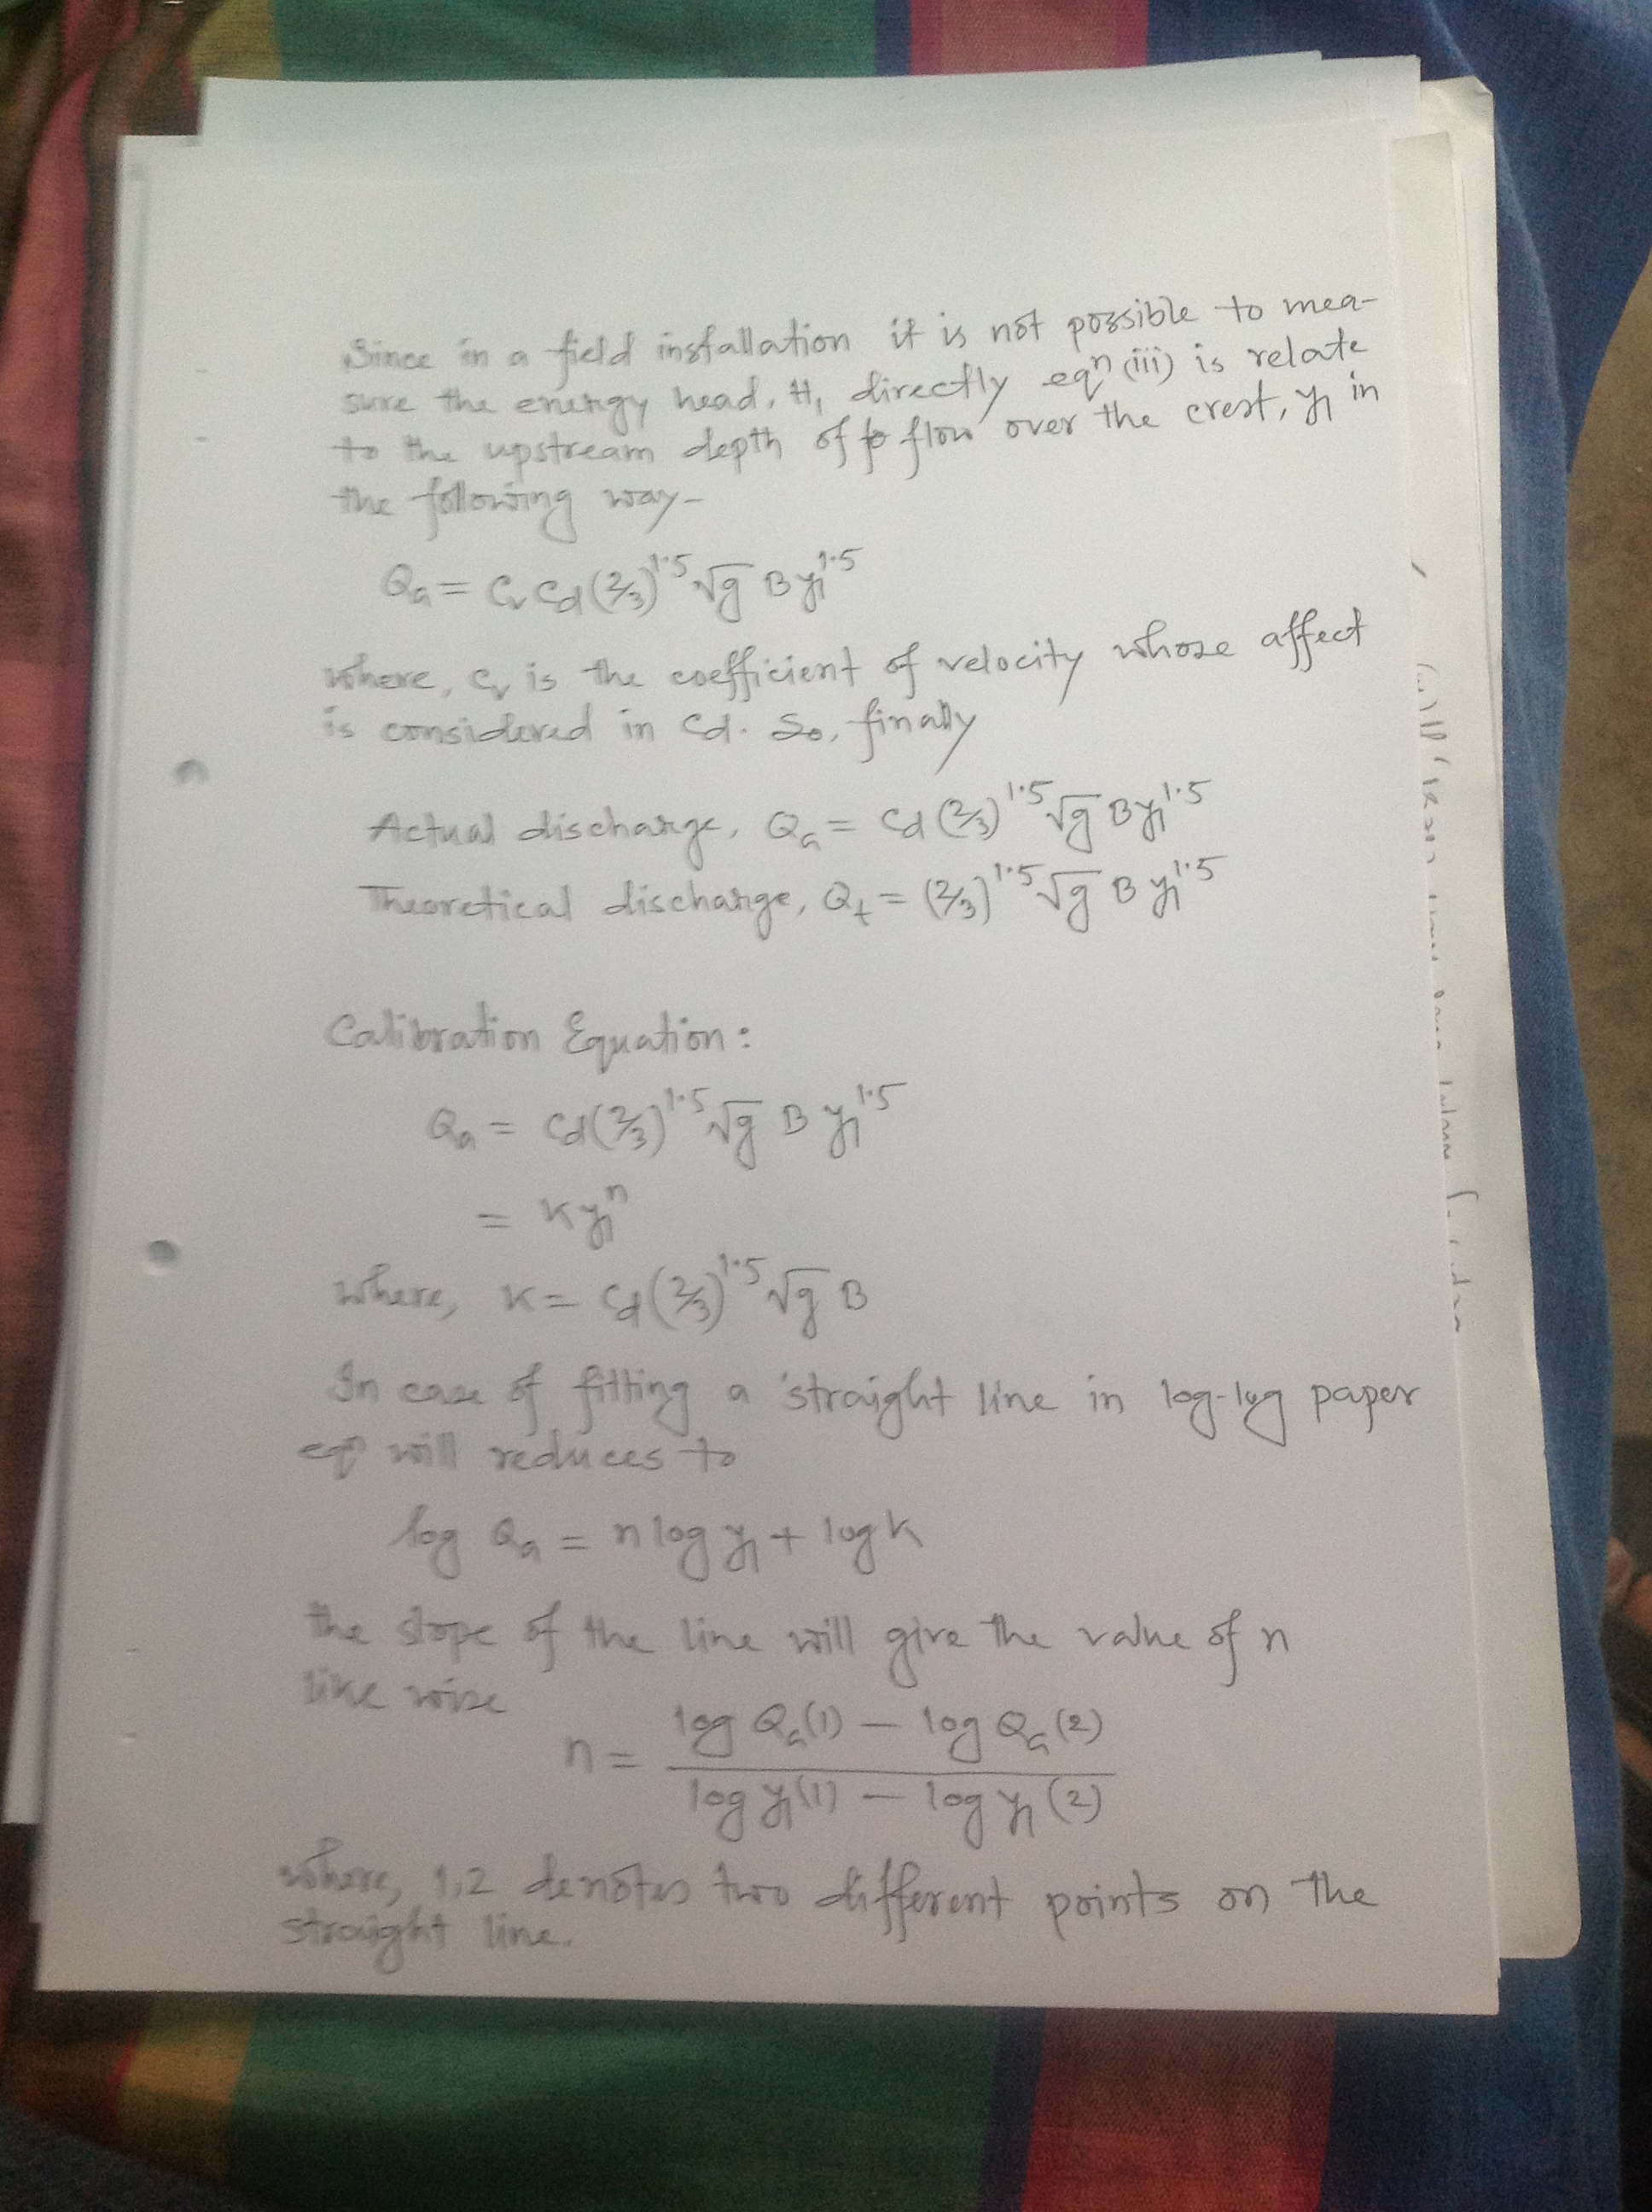 Since in a field installation it is not possible to mea-
sure the energy head, H₁ directly eqⁿ (iii) is relate
to the upstream depth of flow over the crest, y₁ in
the following way-
Qa = Cv Cd (2/3)^1.5 √g B y₁^1.5
where, Cv is the coefficient of velocity whose affect
is considered in Cd. So, finally
Actual discharge, Qa = Cd (2/3)^1.5 √g B y₁^1.5
Theoretical discharge, Qt = (2/3)^1.5 √g B y₁^1.5
Calibration Equation:
Qa = Cd (2/3)^1.5 √g B y₁^1.5
= K y₁^n
where, K = Cd (2/3)^1.5 √g B
In case of fitting a straight line in log-log paper
eqⁿ will reduces to
log Qa = n log y₁ + log K
the slope of the line will give the value of n
like wise
n = (log Qa(1) – log Qa(2)) / (log y₁(1) – log y₁(2))
where, 1,2 denotes two different points on the
straight line.